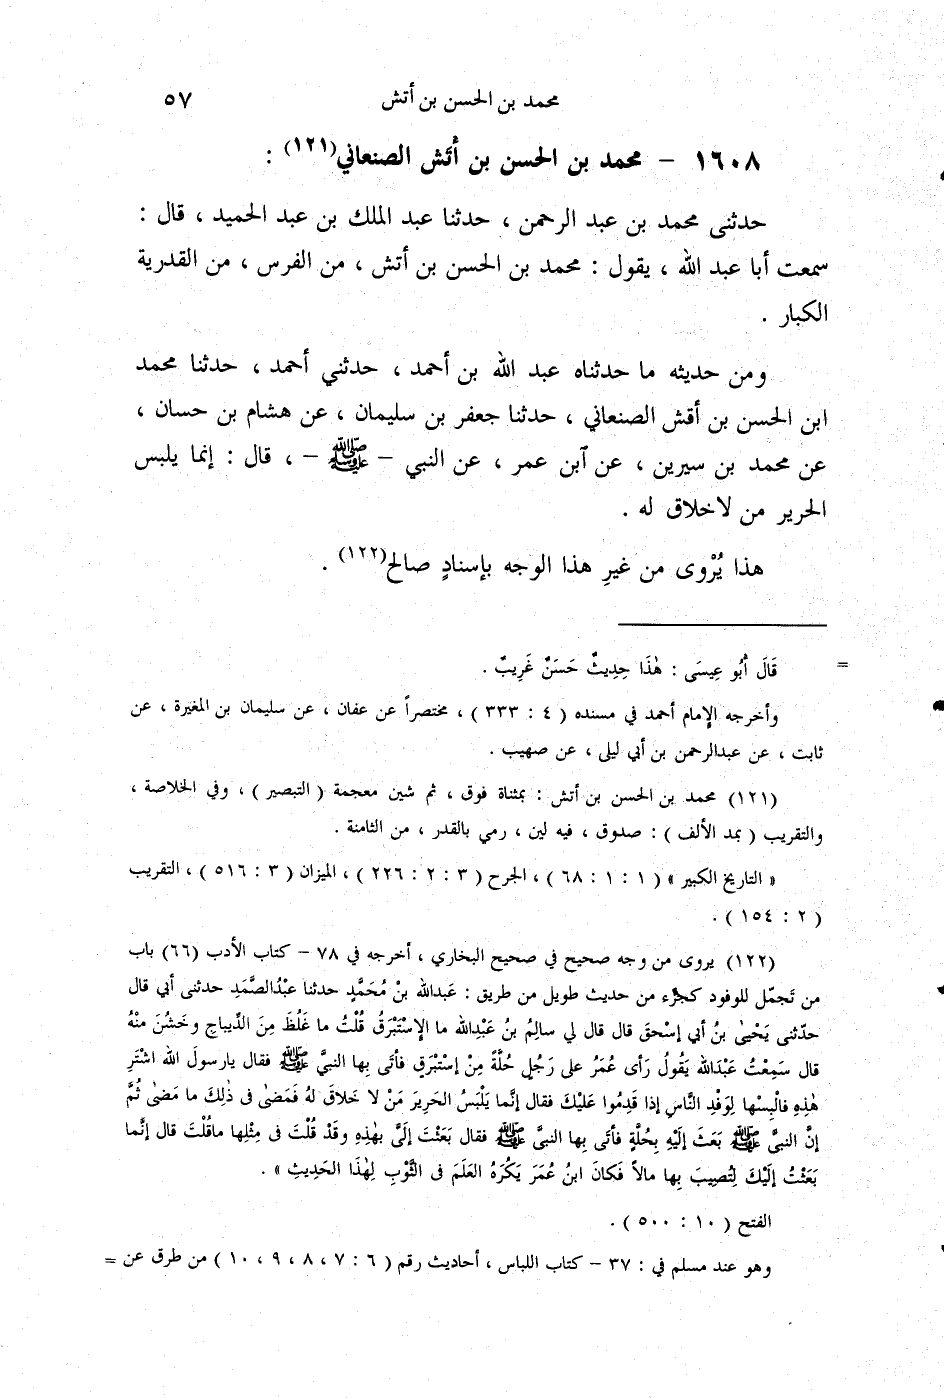 محمد بن الحسن بن أتش ٥٧
١٦٠٨ – محمد بن الحسن بن أُتَش الصنعاني(١٢١) :
حدثنى محمد بن عبد الرحمن ، حدثنا عبد الملك بن عبد الحميد ، قال :
سمعت أبا عبد الله ، يقول : محمد بن الحسن بن أتش ، من الفرس ، من القدرية
الكبار .
ومن حديثه ما حدثناه عبد الله بن أحمد ، حدثني أحمد ، حدثنا محمد
ابن الحسن بن أقش الصنعاني ، حدثنا جعفر بن سليمان ، عن هشام بن حسان ،
عن محمد بن سيرين ، عن آبن عمر ، عن النبي – ﷺ – ، قال : إنما يلبس
الحرير من لاخلاق له .
هذا يُرْوى من غيرِ هذا الوجه بإسنادٍ صالح(١٢٢) .
= قَالَ أَبُو عِيسَى : هٰذَا حِدِيثٌ حَسَنٌ غَرِيبٌ .
وأخرجه الإمام أحمد في مسنده ( ٤ : ٣٣٣ ) ، مختصراً عن عفان ، عن سليمان بن المغيرة ، عن
ثابت ، عن عبدالرحمن بن أبي ليلى ، عن صهيب .
(١٢١) محمد بن الحسن بن أتش : بمثناة فوق ، ثم شين معجمة ( التبصير ) ، وفي الخلاصة ،
والتقريب ( بمد الألف ) : صدوق ، فيه لين ، رمي بالقدر ، من الثامنة .
« التاريخ الكبير » ( ١ : ١ : ٦٨ ) ، الجرح ( ٣ : ٢ : ٢٢٦ ) ، الميزان ( ٣ : ٥١٦ ) ، التقريب
( ٢ : ١٥٤ ) .
(١٢٢) يروى من وجه صحيح في صحيح البخاري ، أخرجه في ٧٨ – كتاب الأدب (٦٦) باب
من تَجمّل للوفود كجزء من حديث طويل من طريق : عَبدالله بنْ مُحَمَّدٍ حدثنا عبْدُالصَّمَدِ حدثنى أبي قال
حدّثنى يَحْيىٰ بنُ أبي إسْحقَ قال قال لي سالِمُ بنُ عَبْدِالله ما الإسْتَبْرَقُ قُلْتُ ما غَلُظَ مِنَ الدِّيباجِ وخَشُنَ منْهُ
قال سَمِعْتُ عَبْدَالله يَقُولُ رَأى عُمَرُ على رَجُلٍ حُلَّةً مِنْ إستَبْرَقٍ فأتَى بِها النبيَّ ﷺ فقال يارسولَ الله اشْتَرِ
هٰذِهِ فالْبِسْها لِوَفْدِ النَّاسِ إذا قَدِمُوا عَلَيْكَ فقال إنَّما يَلْبَسُ الحَرِيرَ مَنْ لا خَلاقَ لهُ فَمَضىٰ فى ذٰلِكَ ما مَضىٰ ثُمَّ
إنَّ النبيَّ ﷺ بَعَثَ إلَيْهِ بِحُلَّةٍ فأتَى بِها النبيَّ ﷺ فقال بَعَثْتَ إلَىَّ بِهٰذِهِ وقَدْ قُلْتَ فى مِثْلِها ماقُلْتَ قال إنَّما
بَعَثْتُ إلَيْكَ لِتُصِيبَ بِها مالاً فَكانَ ابنُ عُمَرَ يَكْرَهُ العَلَمَ فى الثَّوْبِ لِهٰذَا الحَدِيثِ » .
الفتح ( ١٠ : ٥٠٠ ) .
وهو عند مسلم في : ٣٧ – كتاب اللباس ، أحاديث رقم ( ٦ : ٧ ، ٨ ، ٩ ، ١٠ ) من طرق عن =